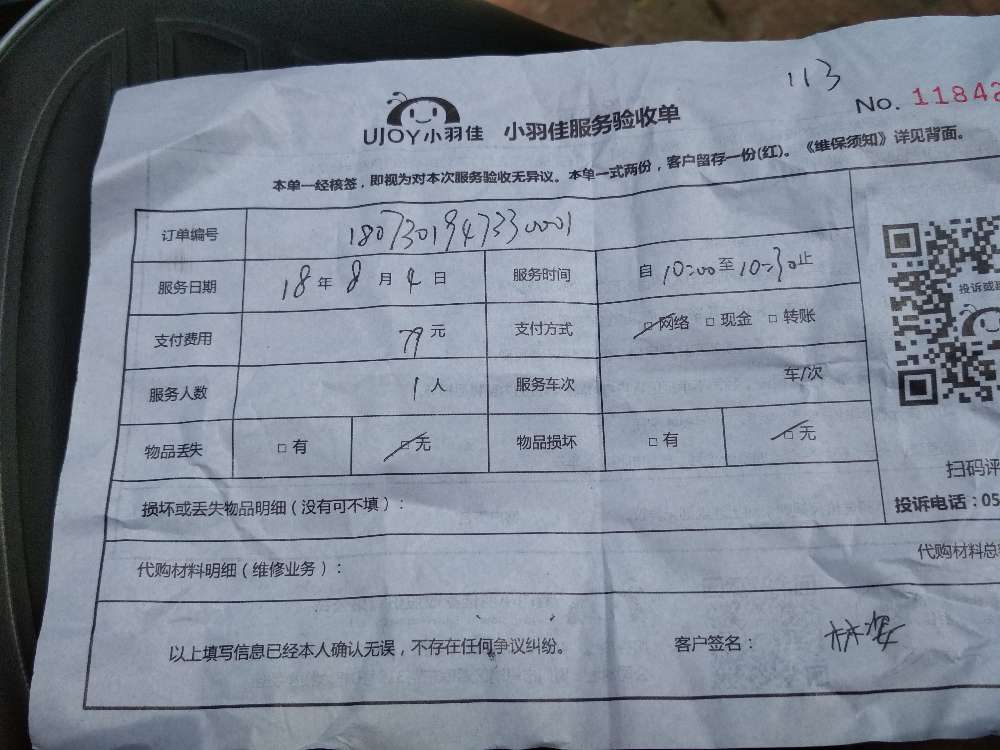 113
UJOY小羽佳 小羽佳服务验收单 No. 11842
本单一经核签，即视为对本次服务验收无异议。本单一式两份，客户留存一份(红)。《维保须知》详见背面。
订单编号 1807301947330001
服务日期 18年 8月 4日 服务时间 自 10:00至10:30止
支付费用 79元 支付方式 □网络 □现金 □转账
服务人数 1人 服务车次 车/次
物品丢失 □有 □无 物品损坏 □有 □无
投诉或
扫码评
投诉电话：05
损坏或丢失物品明细（没有可不填）：
代购材料明细（维修业务）： 代购材料总
以上填写信息已经本人确认无误，不存在任何争议纠纷。 客户签名：